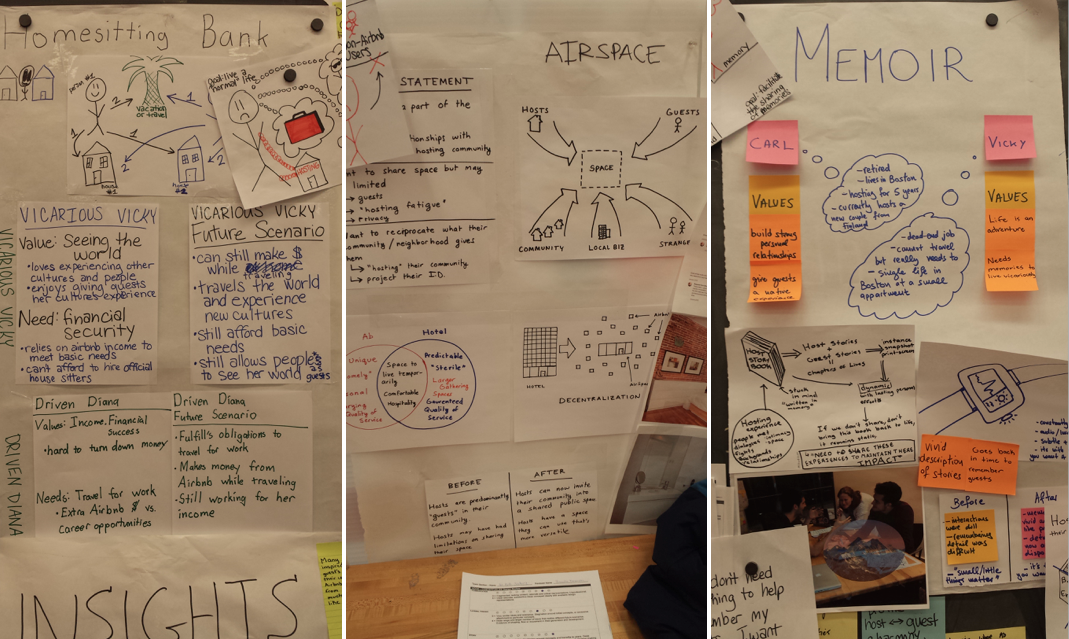 Homesitting Bank
person #1
1
1
vacation
or travel
2
2
house
#1
house
#2
goal: live a
"normal" life
VICARIOUS VICKY
VICARIOUS VICKY
Value: Seeing the
world
• loves experiencing other
cultures and people
• enjoys giving guests
her cultures experience
Need: financial
security
• relies on airbnb income to
meet basic needs
• can't afford to hire official
house sitters
VICARIOUS VICKY
Future Scenario
• can still make $
while
traveling
• travels the world
and experience
new cultures
• still afford basic
needs
• still allows people
to see her world
guests
DRIVEN DIANA
Driven Diana
Values: Income. Financial
success
• hard to turn down money
Needs: Travel for work
• Extra Airbnb $ vs.
career opportunities
Driven Diana
Future Scenario
• Fulfills obligations to
travel for work
• Makes money from
Airbnb while traveling
• Still working for her
income
INSIGHTS
Many
on-Airbnb
Users
STATEMENT
a part of the
ionships with
hosting community
nt to share space but may
limited
→ guests
→ "hosting fatigue"
→ Privacy
ant to reciprocate what their
mmunity/neighborhood gives
hem
↳ "hosting" their community
↳ project their I.D.
AIRSPACE
HOSTS
GUESTS
SPACE
COMMUNITY
LOCAL BIZ
STRANGE
Ab
Hotel
Unique
Space to
live tempor-
arily
Comfortable
Hospitality
Predictable
"Sterile"
Larger
Gathering
Spaces
Guaranteed
Quality of
Service
Quality of
Service
HOTEL
DECENTRALIZATION
BEFORE
Hosts are predominantly
"guests" in their
community.
Hosts may have had
limitations on sharing
their space
AFTER
Hosts can now invite
their community into
a shared public space
Hosts have a space
they can use that's
more versatile
MEMOIR
memory
goal: facilitate
the sharing
of memories
CARL
VALUES
build strong
personal
relationships
give guests
a native
experience
- retired
- lives in Boston
- hosting for 5 years
- currently hosts a
new couple from
Finland
- dead-end job
- cannot travel
but really needs to
- single life in
Boston at a small
appartment
Vicky
VALUES
Life is an
adventure
Needs
memories to
live vicariously
HOST
STORY
BOOK
Host Stories
Guest Stories
=
chapters of lives
instance
snapshot
dynamic
Stuck
in mind
"written in
memory"
Hosting
experience
people met
dialogues
fights
Backgrounds
relationships
If we don't share, don't
bring this book back to life,
it remains static.
↳ NEED TO SHARE THESE
EXPERIENCES TO MAINTAIN THEIR
IMPACT
vivid
description
of stories
Goes back
in time to
remember
guests
Before
- interactions
were dull
- remembering
detail was
difficult
- "small/little
things matter"
After
don't need
thing to help
mber my
I want
host ↔ guest
harmony